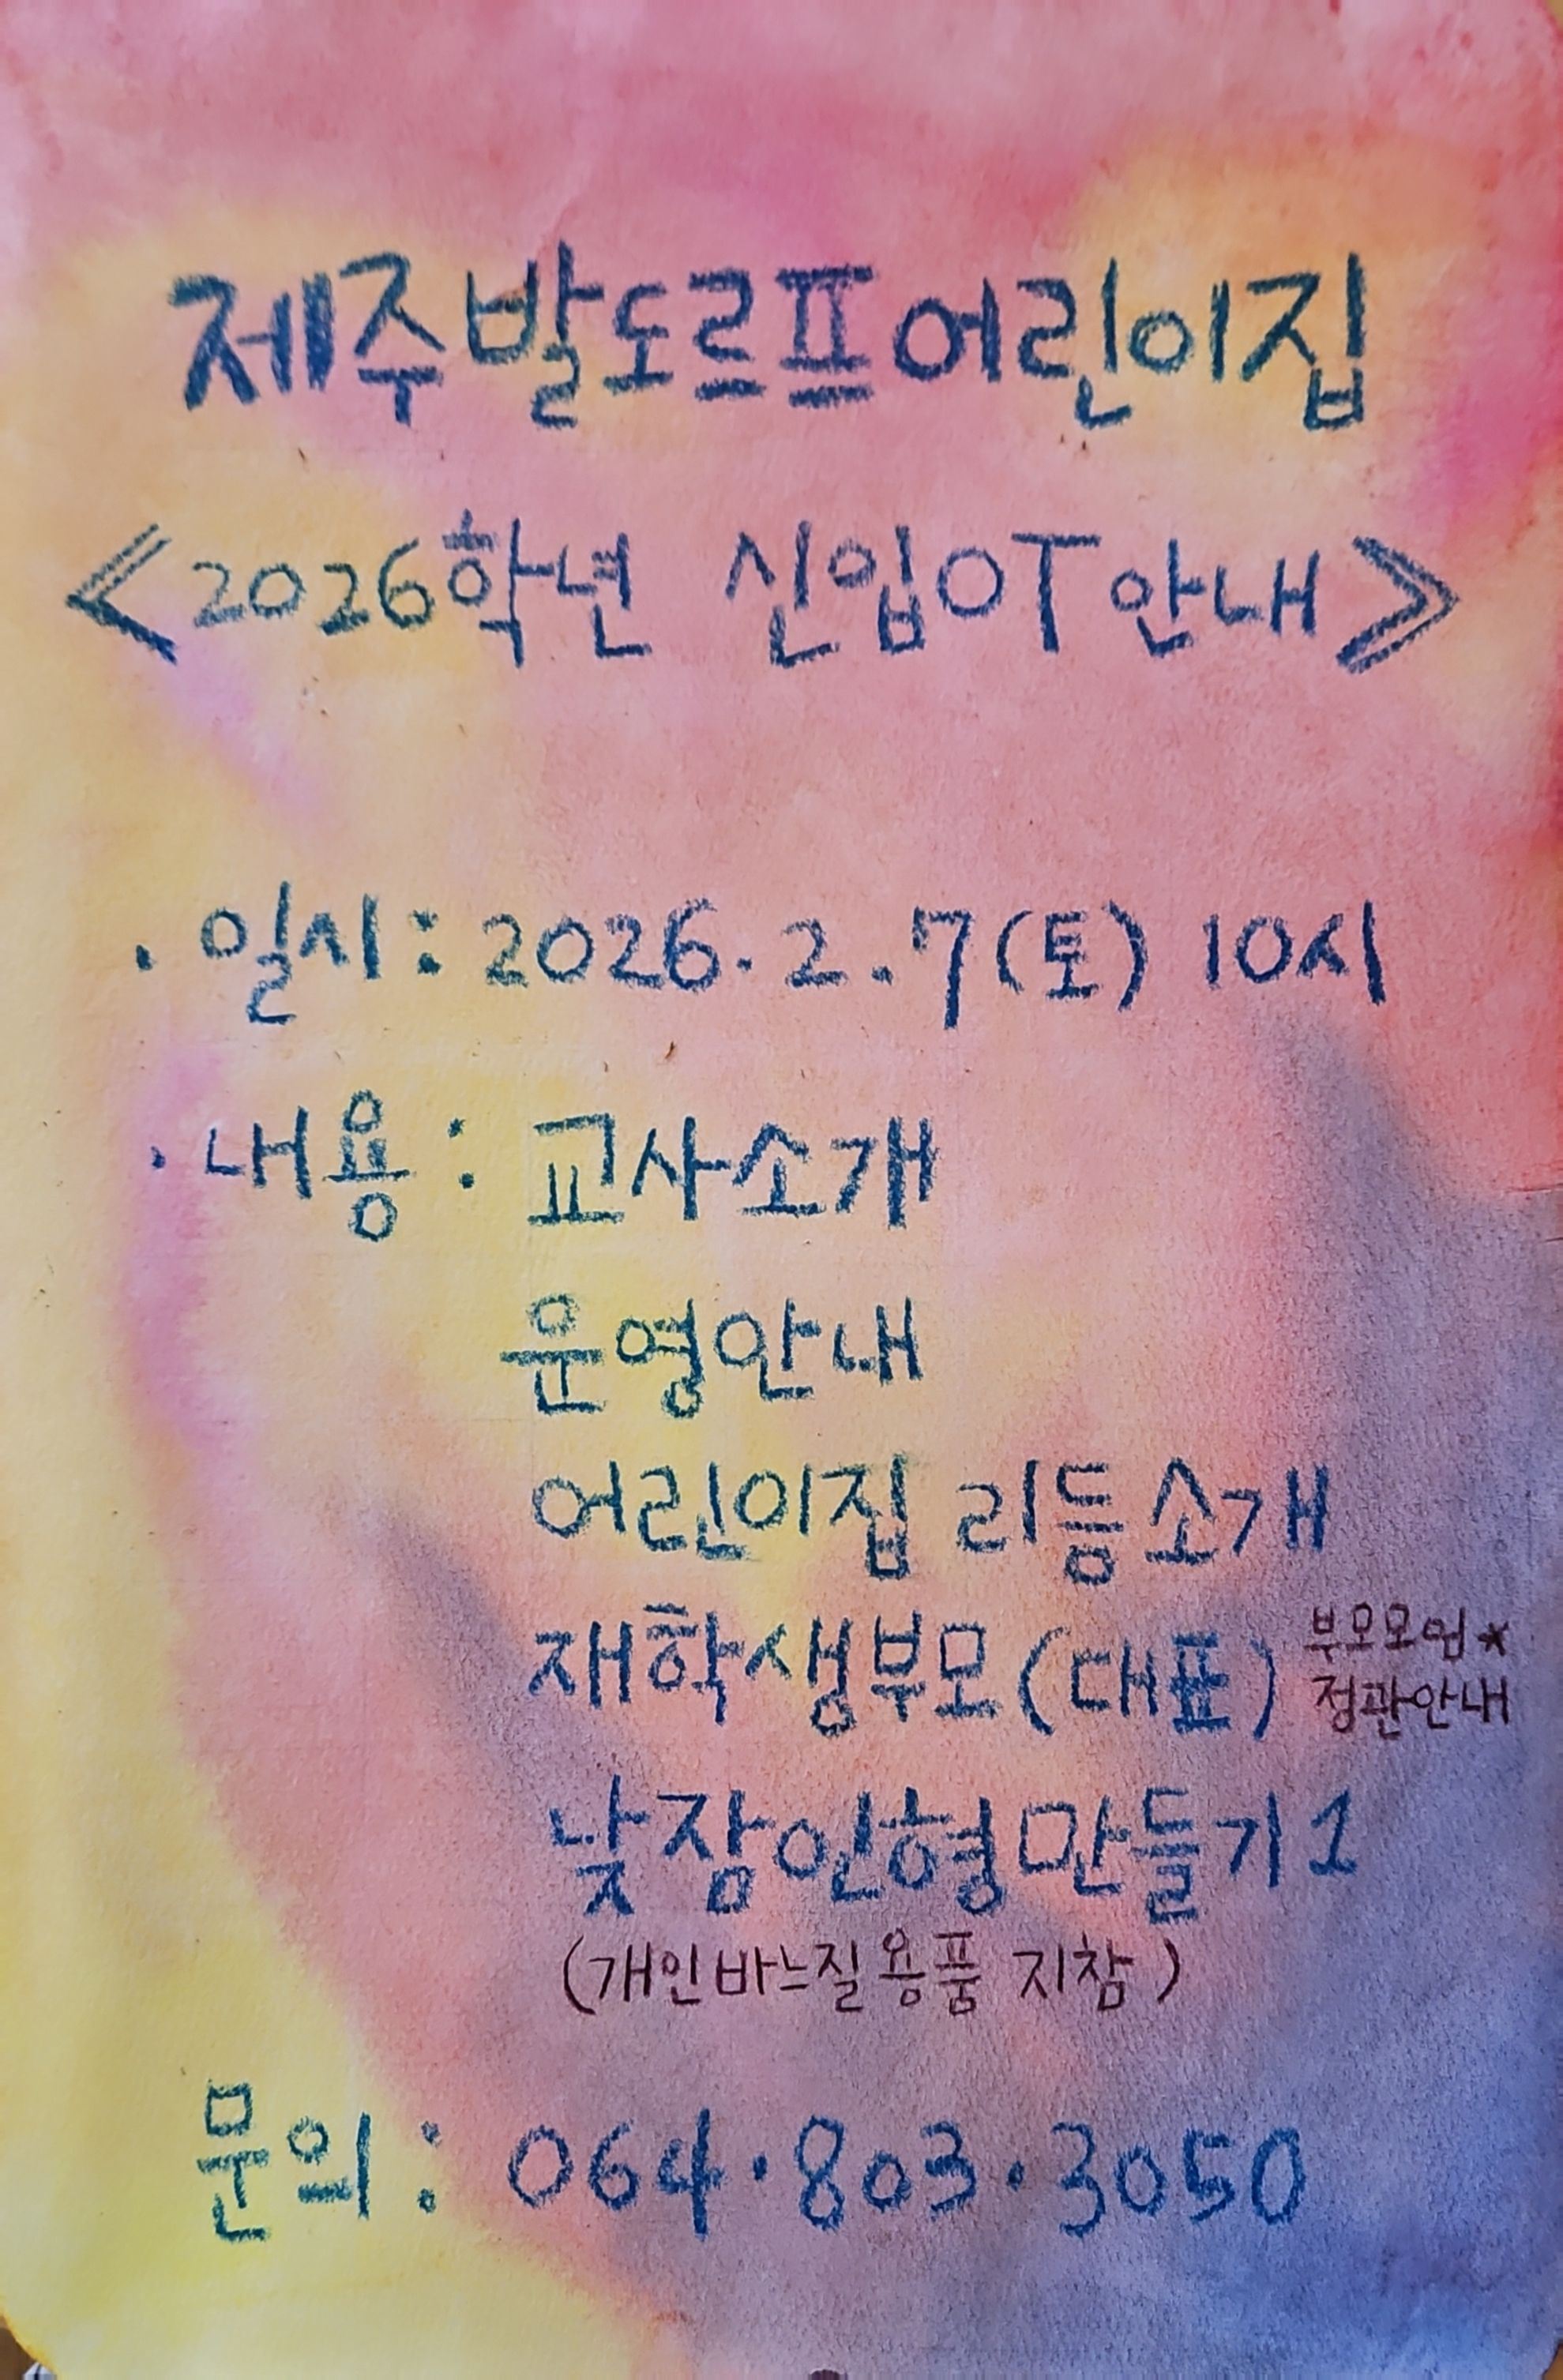 제주발도르프어린이집
≪2026학년 신입OT안내≫
· 일시: 2026. 2. 7(토) 10시
· 내용: 교사소개
운영안내
어린이집 리듬소개
재학생부모(대표) 부모모임*
정관안내
낮잠인형만들기1
(개인바느질용품 지참)
문의: 064·803·3050